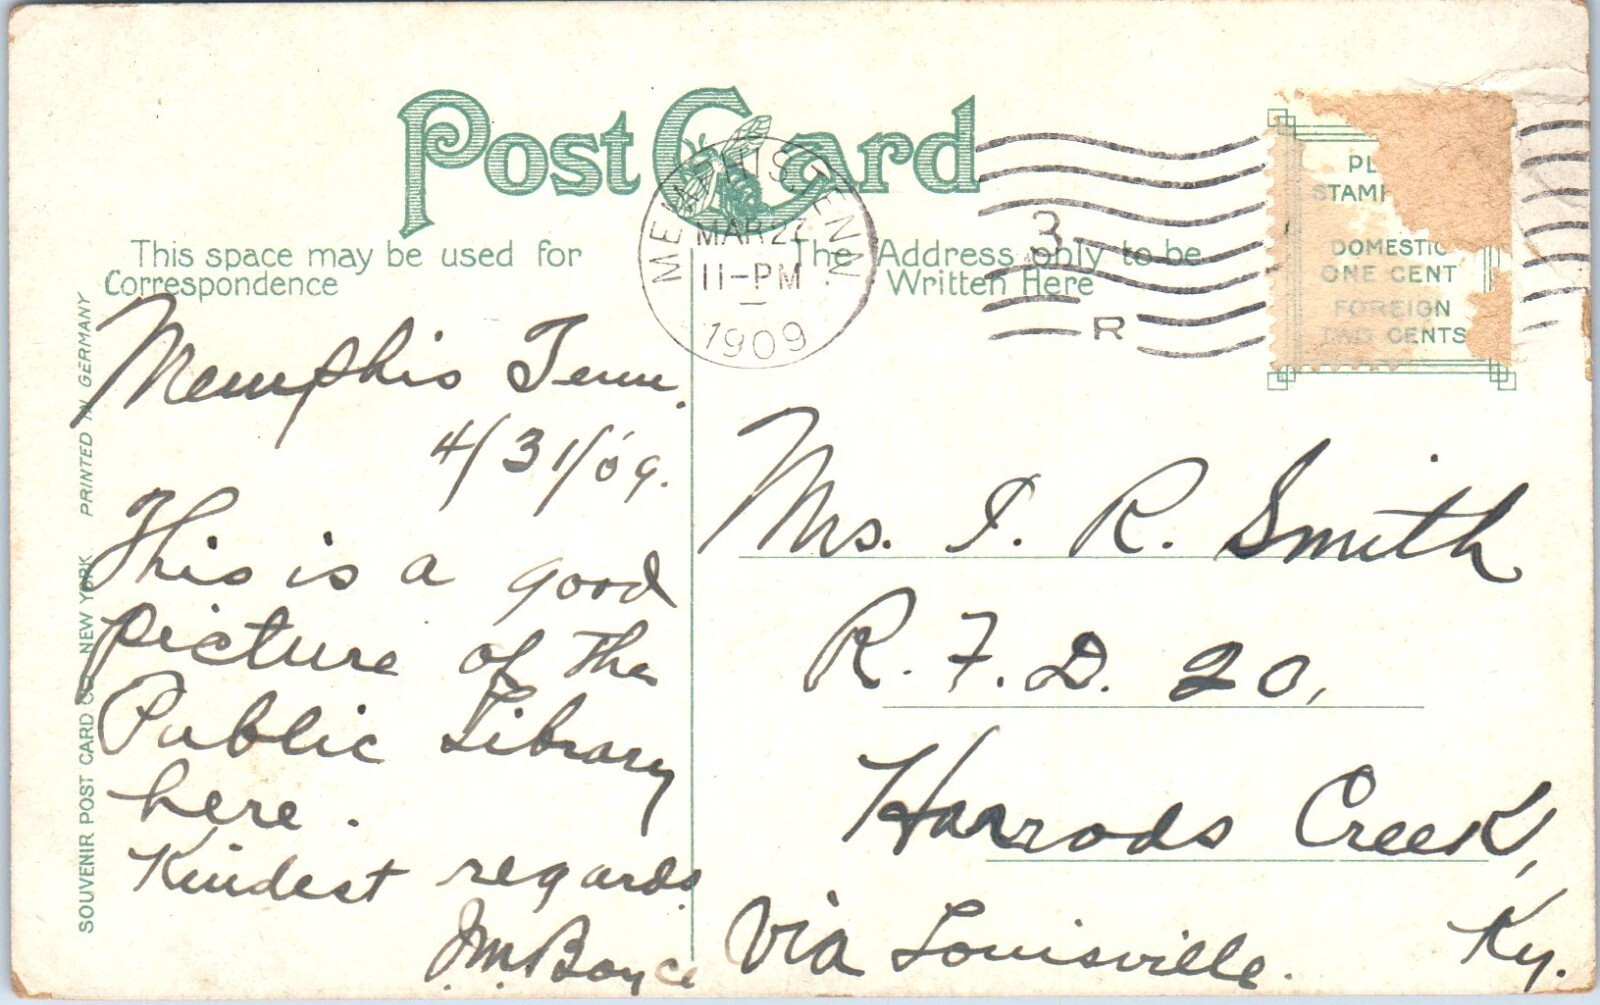 Post Card
This space may be used for
Correspondence
The Address only to be
Written Here
MEMPHIS, TENN.
MAR 22
11-PM
1909
3
R
STAMP
DOMESTIC
ONE CENT
FOREIGN
TWO CENTS
SOUVENIR POST CARD CO. NEW YORK PRINTED IN GERMANY
Memphis Tenn.
4/31/09.
This is a good
picture of the
Public Library
here.
Kindest regards
J.M. Boyce
Mrs. I. R. Smith
R. F. D. 20,
Harrods Creek,
via Louisville. Ky.